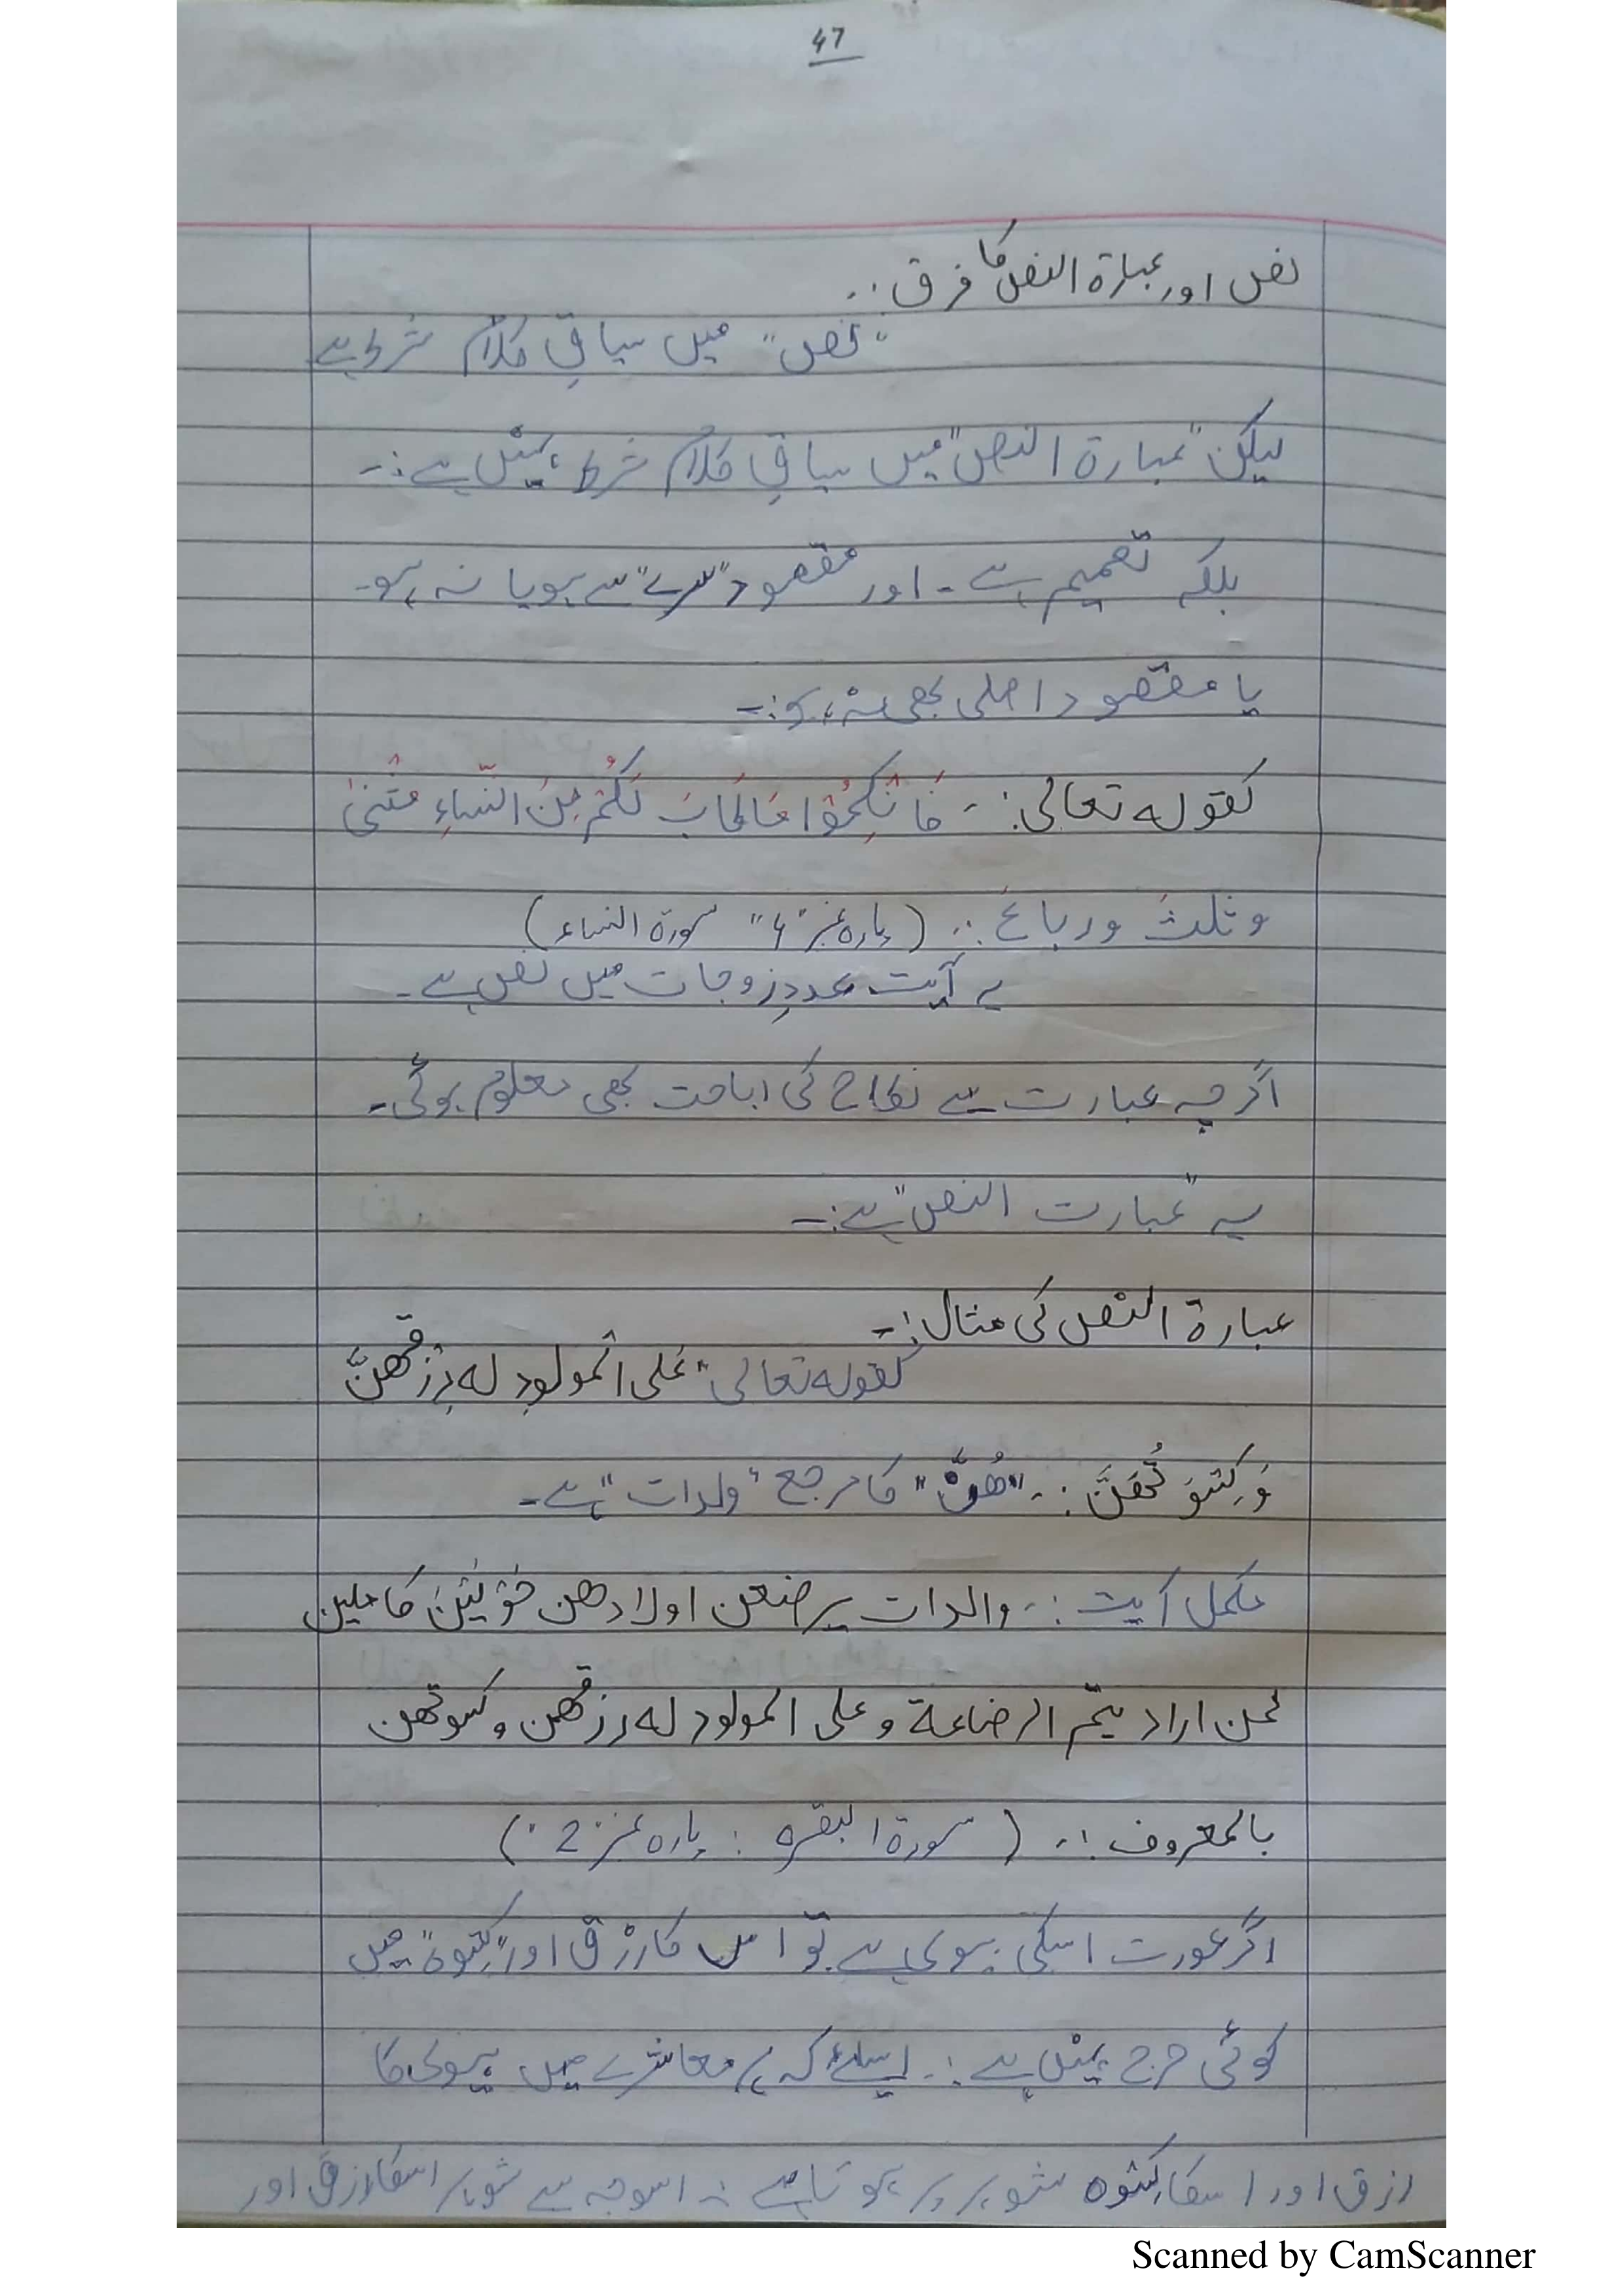 47
نص اور عبارۃ النص کا فرق :۔
"نص" میں سیاقِ کلام شرط ہے
لیکن "عبارۃ النص" میں سیاقِ کلام شرط نہیں ہے :۔
بلکہ تعمیم ہے۔ اور مقصود سرے سے ہو یا نہ ہو۔
یا مقصود اصلی بھی نہ ہو :۔
کقولہ تعالی :۔ فَانْكِحُوْا مَا طَابَ لَكُمْ مِنَ النِّسَاءِ مَثْنٰی
و ثلٰث وربٰاعَ :۔ (پارہ نمبر "4" سورۃ النساء)
یہ آیت عددِ زوجات میں نص ہے۔
اگرچہ عبارت سے نکاح کی اباحت بھی معلوم ہوگئی۔
یہ "عبارت النص" ہے :۔
عبارۃ النص کی مثال :۔
کقولہ تعالی "عَلی المولودِ لہ رِزقھنَّ
وَکِسْوَتُھُنَّ :۔ "ھُنَّ" کا مرجع "ولدات" ہے۔
مکمل آیت :۔ والدات یرضعن اولادھن حَوْلَیْنَ کاملین
لمن اراد یتم الرضاعۃ وعلی المولود لہ رزقھن وکسوتھن
بالمعروف :۔ (سورۃ البقرہ : پارہ نمبر : 2 :)
اگر عورت اسکی بیوی ہے تو اس کا رزق اور "کِسْوہ" میں
کوئی حرج نہیں ہے :۔ اسلئے کہ ہر معاشرے میں بیوی کا
رزق اور اسکا کِسْوہ شوہر پر ہوتا ہے :۔ اسوجہ سے شوہر اسکا رزق اور
Scanned by CamScanner